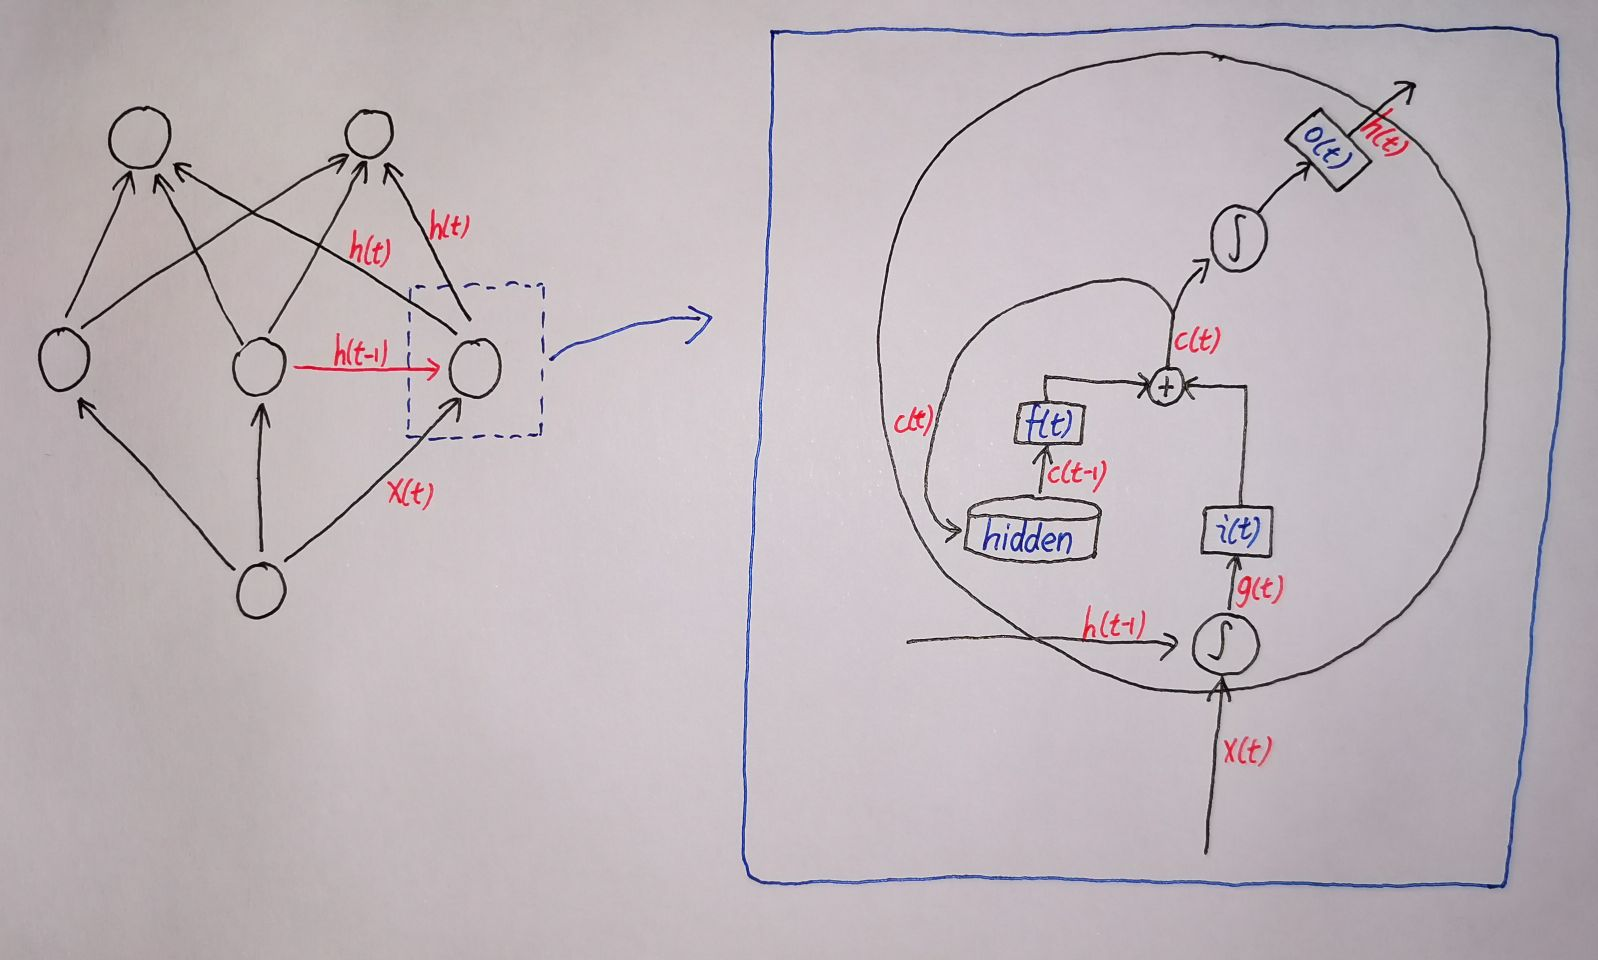 h(t)
h(t)
h(t-1)
X(t)
o(t)
h(t)
∫
c(t)
+
c(t)
f(t)
c(t-1)
hidden
i(t)
g(t)
h(t-1)
∫
X(t)